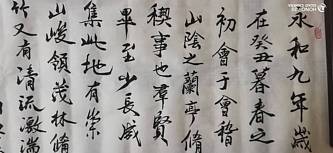 永和九年歲
在癸丑暮春之
初會于會稽
山陰之蘭亭脩
稧事也群賢
畢至少長咸
集此地有崇
山峻領茂林脩
竹又有清流激湍